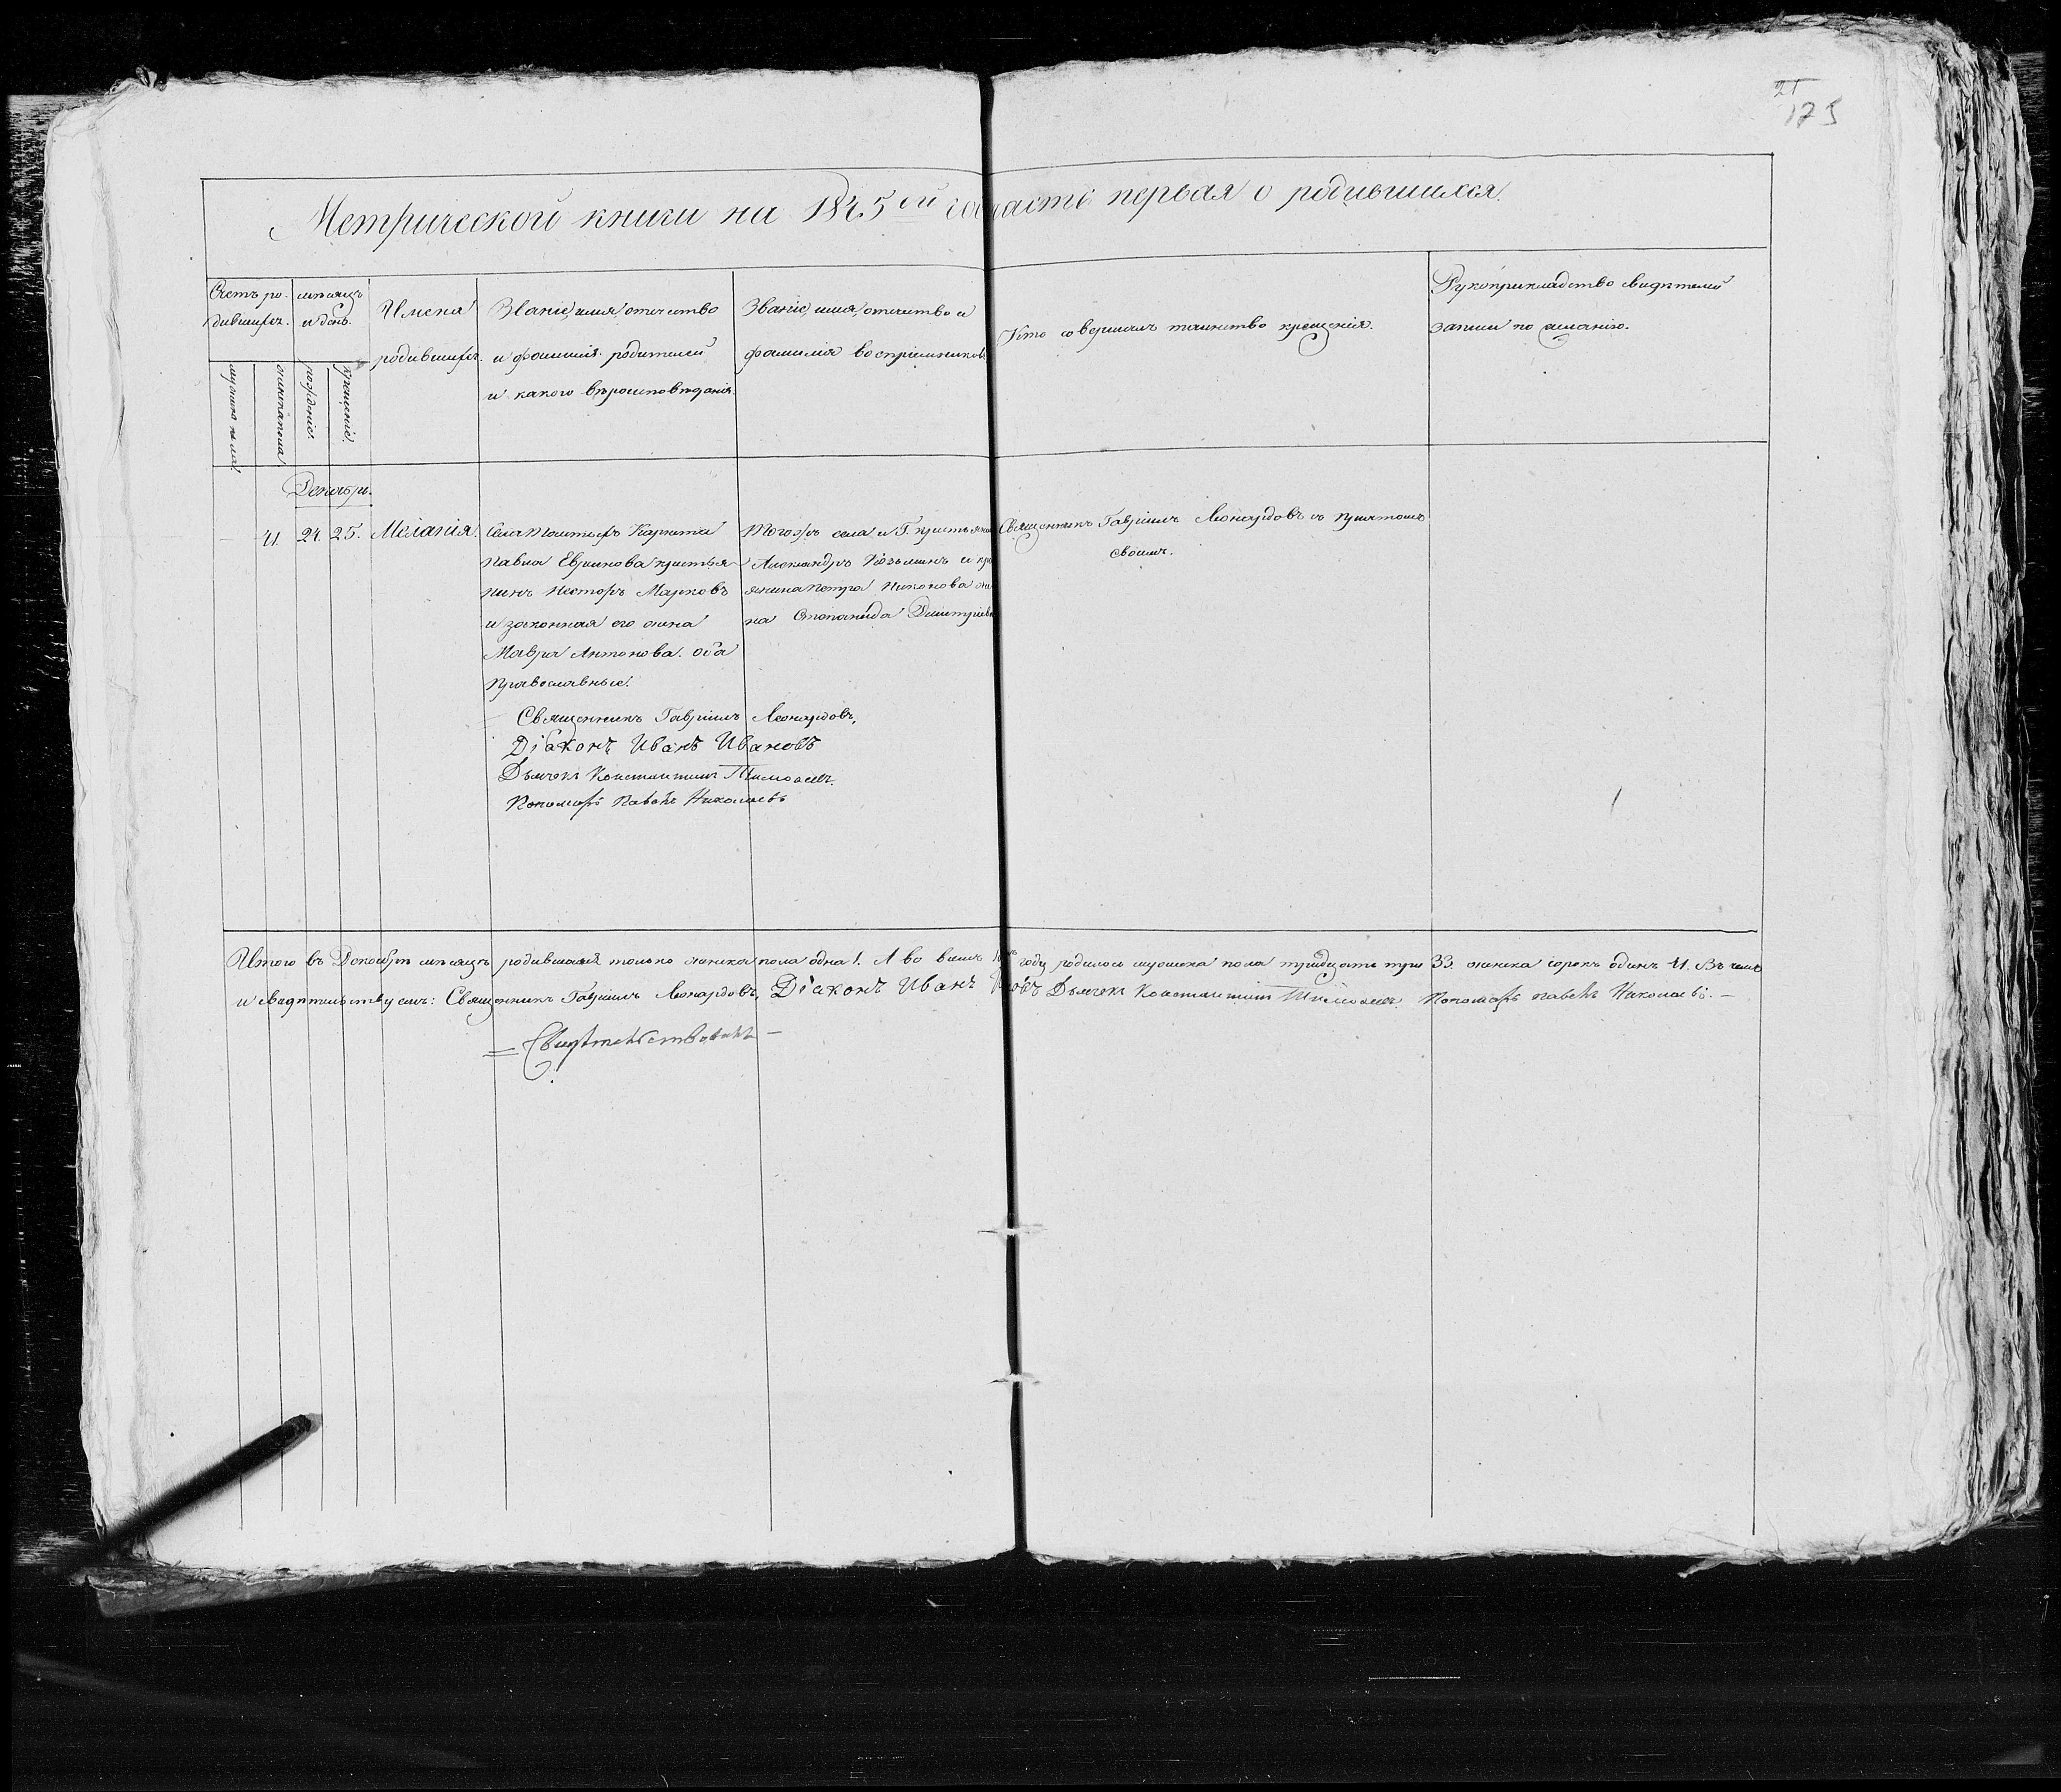 21
175
Метрической книги на 1845ой годъ часть первая о родившихся.
Счетъ ро-
дившихся.
мѣсяцъ
и день.
Имена
родившихся.
Званіе, имя, отечество
и фамилія родителей
и какого вѣроисповѣданія.
Званіе, имя, отечество и
фамилія воспріемниковъ
Кто совершалъ таинство крещенія.
Рукоприкладство свидѣтелей
записи по желанію.
мужеска пола
женска пола
рожденіе.
крещеніе.
Декабрь.
41. 24. 25. Меланія.
Села Г.
Павла крестья-
нинъ Несторъ Марковъ
и законная его жена
Мавра Антонова. оба
православные.
Тогожъ села и Г. крестьянин
Александръ Козьминъ и кре
янина Петра Никонова же
на Степанида Дмитріева
Священникъ Гавріилъ Леонардовъ съ причтомъ
своимъ.
Священникъ Гавріилъ Леонардовъ,
Діаконъ Иванъ Ивановъ
Дьячекъ Константинъ Тимоѳеевъ.
Пономарь Павелъ Николаевъ
Итого въ Декабрѣ мѣсяцѣ родившаяся только женска пола одна 1. А во всемъ 1845мъ году родилось мужеска пола тридцать три 33. женска сорокъ одинъ 41. Въ чемъ
и свидѣтельствуемъ: Священникъ Гавріилъ Леонардовъ, Діаконъ Иванъ Ивановъ Дьячекъ Константинъ Тимоѳеевъ. Пономарь Павелъ Николаевъ. —
= Свидѣтельствовалъ —